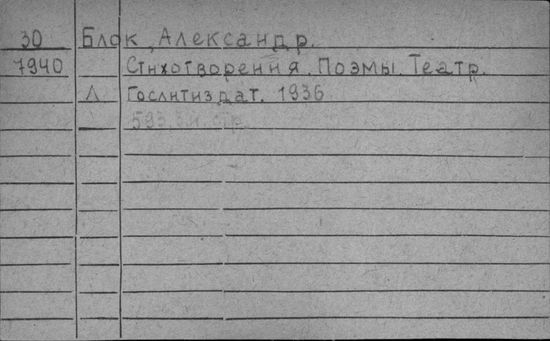 30 Блок, Александр.
7940 Стихотворения. Поэмы. Театр.
Л Гослитиздат. 1936
593 стр.